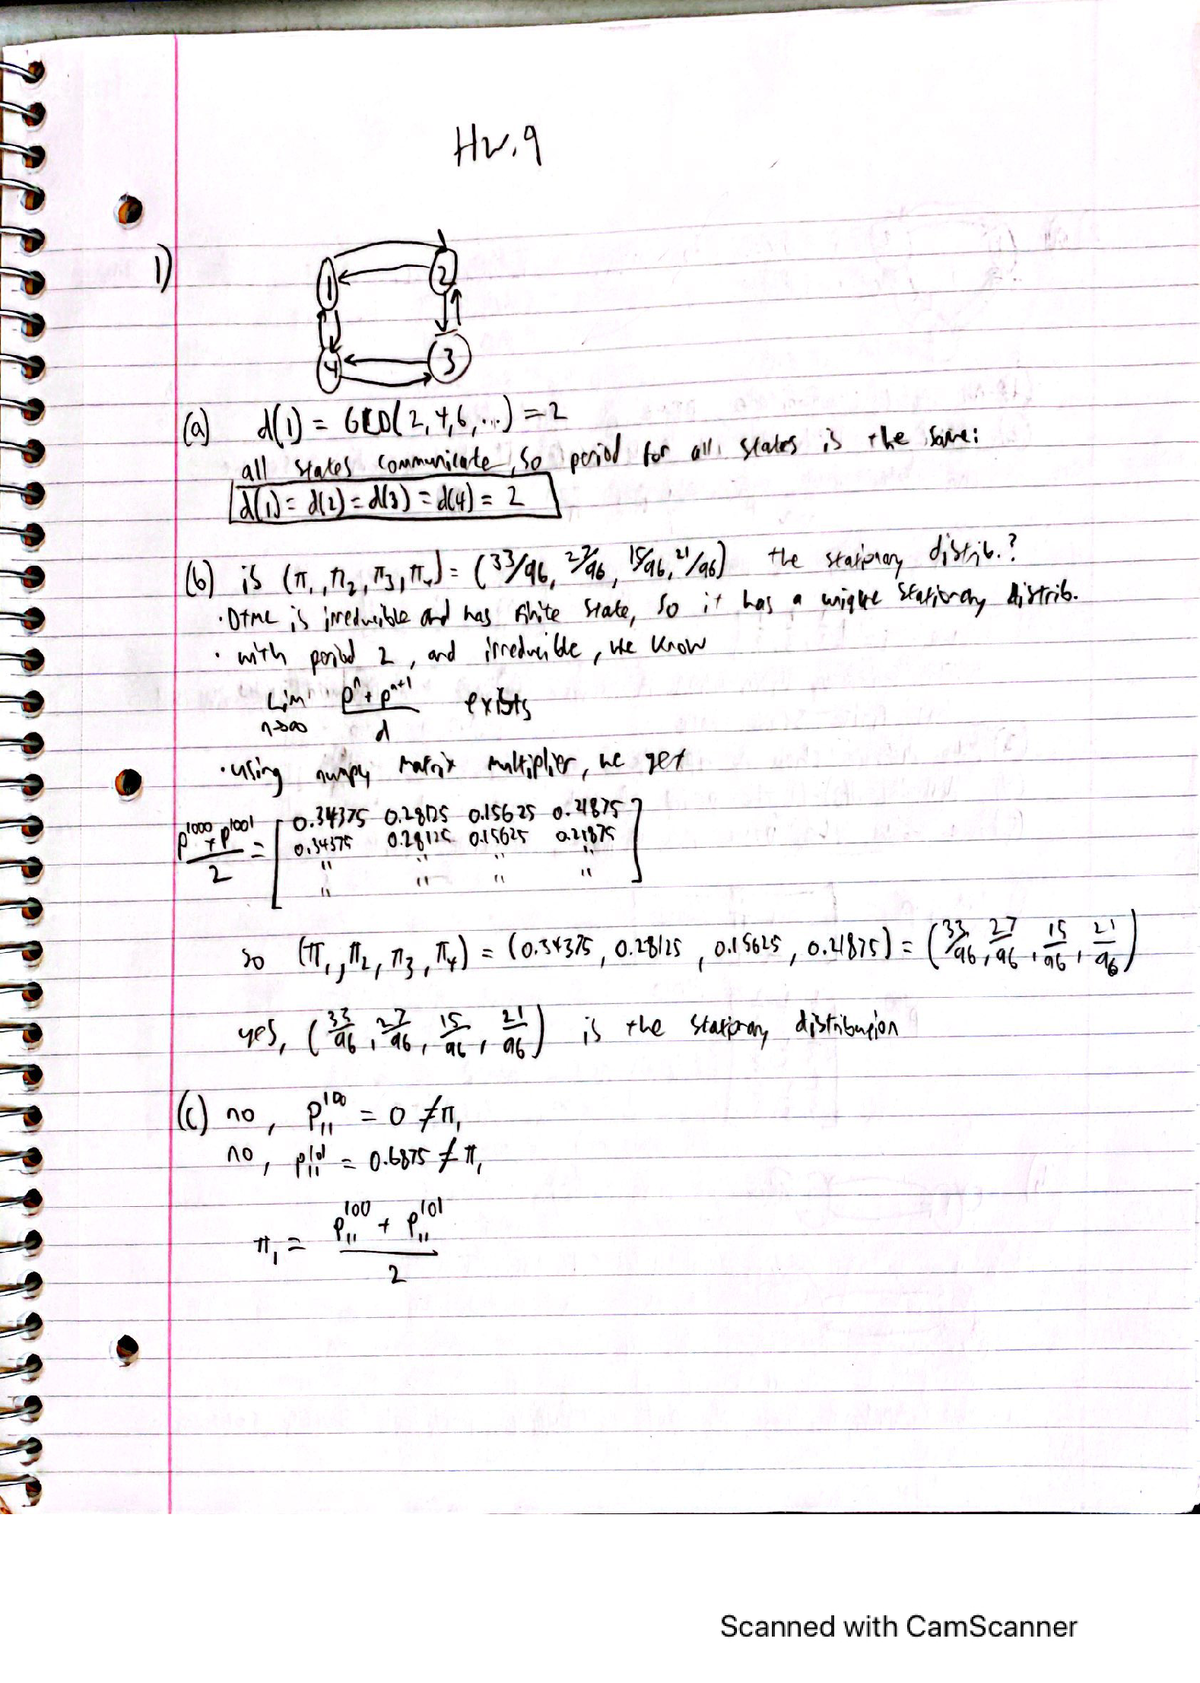 Hw.9
1)
1 2
4 3
(a) d(1) = GCD(2,4,6,...) = 2
all states communicate, so period for all states is the same:
d(1) = d(2) = d(3) = d(4) = 2
(b) is (π₁, π₂, π₃, π₄) = (33/96, 27/96, 15/96, 21/96) the stationary distrib.?
· DTMC is irreducible and has finite state, so it has a unique stationary distrib.
· with period 2, and irreducible, we know
Lim n→∞ (Pⁿ + Pⁿ⁺¹)/d exists
· using numpy matrix multiplier, we get
(P¹⁰⁰⁰ + P¹⁰⁰¹)/2 = [ 0.34375 0.28125 0.15625 0.21875
0.34375 0.28125 0.15625 0.21875
" " " "
" " " " ]
so (π₁, π₂, π₃, π₄) = (0.34375, 0.28125, 0.15625, 0.21875) = (33/96, 27/96, 15/96, 21/96)
yes, (33/96, 27/96, 15/96, 21/96) is the stationary distribution
(c) no, P₁₁¹⁰⁰ = 0 ≠ π₁
no, P₁₁¹⁰¹ = 0.6875 ≠ π₁
π₁ = (P₁₁¹⁰⁰ + P₁₁¹⁰¹)/2
Scanned with CamScanner